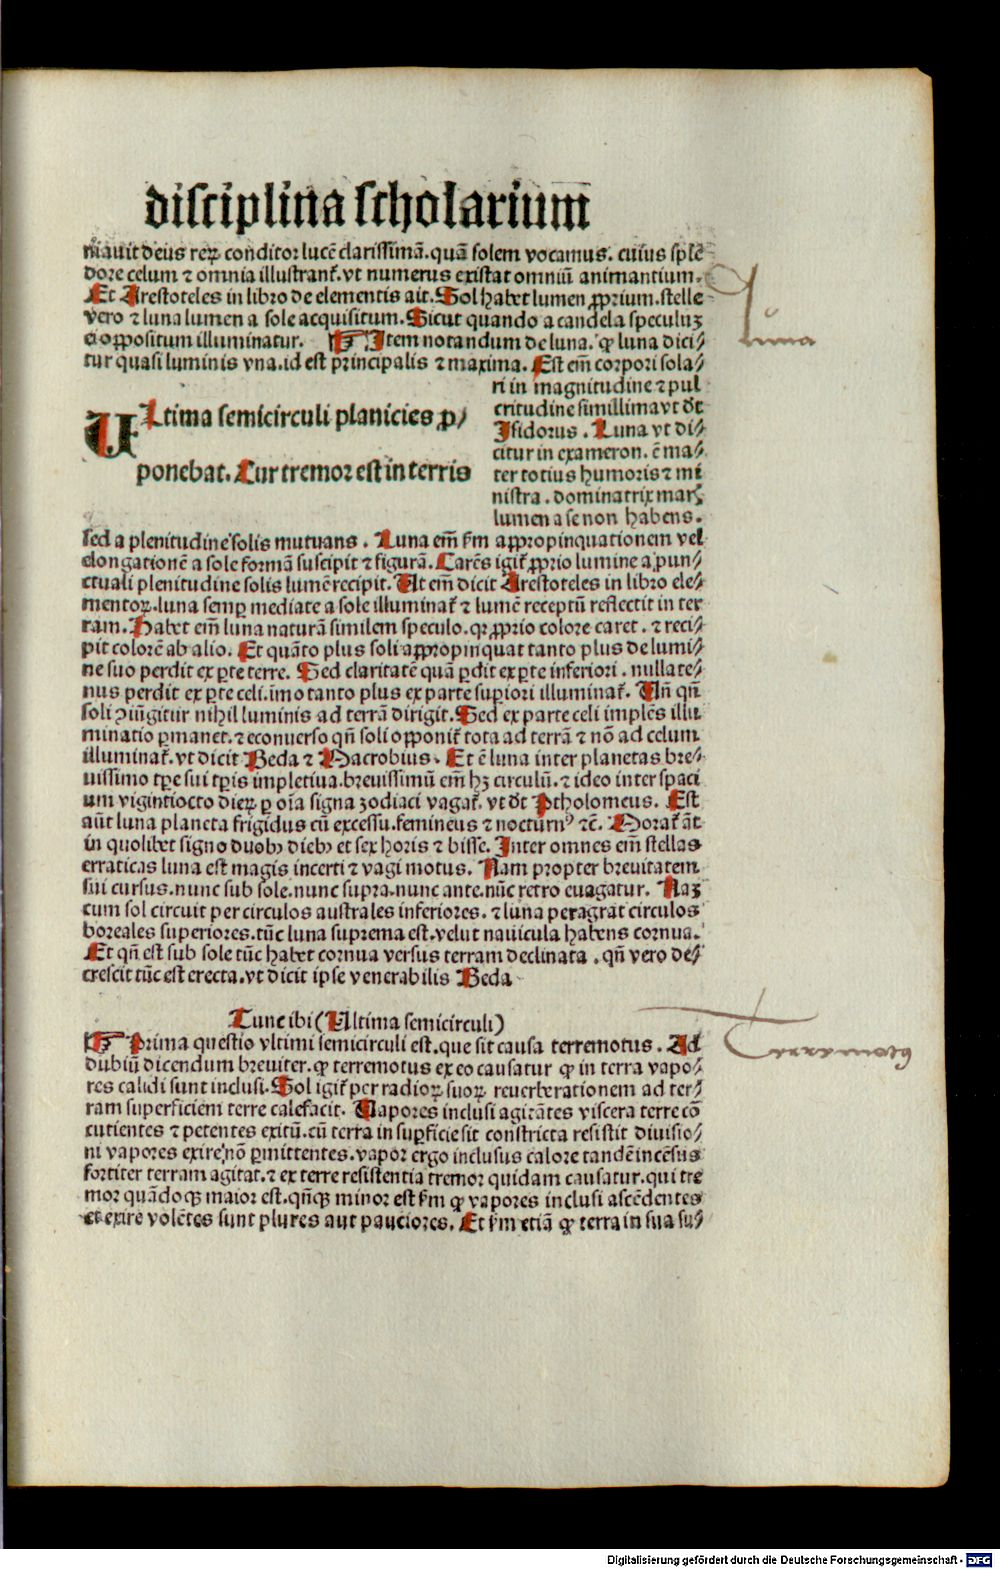 disciplina scholarium
miauit deus reꝝ conditor lucē clarissimā. quā solem vocamus. cuius splē
dore celum ⁊ omnia illustrant᷑. vt numerus existat omniū animantium.
Et Arestoteles in libro de elementis ait. Sol habet lumen ꝓprium. stelle
vero ⁊ luna lumen a sole acquisitum. Sicut quando a candela speculuꝫ
ei oppositum illuminatur. ¶ Item notandum de luna. ꝙ luna dici⸗
tur quasi luminis vna. id est principalis ⁊ maxima. Est em̄ corpori sola⸗
ri in magnitudine ⁊ pul
critudine simillima vt dt̄
Isidorus. Luna vt di⸗
citur in exameron. ē ma⸗
ter totius humoris ⁊ mi
nistra. dominatrix mar.
lumen a se non habens.
ULtima semicirculi planicies ꝓ⸗
ponebat. Cur tremor est in terris
sed a plenitudine solis mutuans. Luna em̄ fm̄ appropinquationem vel
elongationē a sole formā suscipit ⁊ figurā. Carēs igit᷑ ꝓprio lumine a pun⸗
ctuali plenitudine solis lumē recipit. Ut em̄ dicit Arestoteles in libro ele⸗
mentoꝝ. luna semꝑ mediate a sole illuminat᷑ ⁊ lumē receptū reflectit in ter
ram. Habet em̄ luna naturā similem speculo. qꝛ ꝓprio colore caret. ⁊ reci⸗
pit colorē ab alio. Et quāto plus soli appropinquat tanto plus de lumi⸗
ne suo perdit ex ꝑte terre. Sed claritatē quā ꝑdit ex ꝑte inferiori. nullate⸗
nus perdit ex ꝑte celi. imo tanto plus ex parte suꝑiori illuminat᷑. Un̄ qn̄
soli ↄiūgitur nihil luminis ad terrā dirigit. Sed ex parte celi implēs illu
minatio ꝑmanet. ⁊ econuerso qn̄ soli opponit᷑ tota ad terrā ⁊ nō ad celum
illuminat᷑. vt dicit Beda ⁊ Macrobius. Et ē luna inter planetas bre⸗
uissimo tꝑe sui tꝑis impletiua. breuissimū em̄ hꝫ circulū. ⁊ ideo inter spaci
um vigintiocto dieꝝ ꝑ oīa signa zodiaci vagat᷑. vt dt̄ Ptholomeus. Est
aūt luna planeta frigidus cū excessu. femineus ⁊ nocturnꝰ ⁊c̄. Morat᷑ āt
in quolibet signo duobꝫ diebꝫ et sex horis ⁊ bisse. Inter omnes em̄ stellas
erraticas luna est magis incerti ⁊ vagi motus. Nam propter breuitatem
sui cursus. nunc sub sole. nunc supra. nunc ante. nūc retro euagatur. Naꝫ
cum sol circuit per circulos australes inferiores. ⁊ luna peragrat circulos
boreales superiores. tūc luna suprema est. velut nauicula habens cornua.
Et qn̄ est sub sole tūc habet cornua versus terram declinata. qn̄ vero de⸗
crescit tūc est erecta. vt dicit ipse venerabilis Beda
Tunc ibi (Ultima semicirculi)
¶ Prima questio vltimi semicirculi est. que sit causa terremotus. Ad
dubiū dicendum breuiter. ꝙ terremotus ex eo causatur ꝙ in terra vapo⸗
res calidi sunt inclusi. Sol igit᷑ per radioꝝ suoꝝ reuerberationem ad ter⸗
ram superficiem terre calefacit. Vapores inclusi agitātes viscera terre cō
cutientes ⁊ petentes exitū. cū terra in suꝑficie sit constricta resistit diuisio⸗
ni vapores exire nō ꝑmittentes. vapor ergo inclusus calore tandē incēsus
fortiter terram agitat. ⁊ ex terre resistentia tremor quidam causatur. qui tre
mor quādoqꝫ maior est. qn̄qꝫ minor est fm̄ ꝙ vapores inclusi ascēdentes
et exire volētes sunt plures aut pauciores. Et fm̄ etiā ꝙ terra in sua su⸗
luna
Terremotꝰ
Digitalisierung gefördert durch die Deutsche Forschungsgemeinschaft - DFG